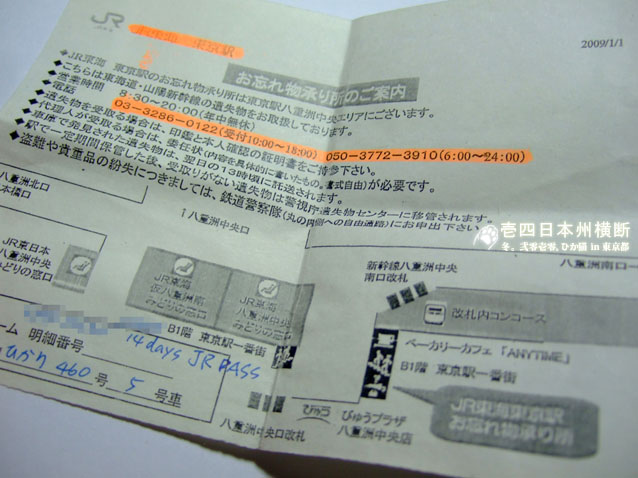 JR
JR東海 東京駅
2009/1/1
お忘れ物承り所のご案内
◆JR東海 東京駅のお忘れ物承り所は東京駅八重洲中央エリアにございます。
◆こちらは東海道・山陽新幹線の遺失物をお取扱しております。
◆営業時間 8:30~20:00(年中無休)
◆電話 03-3286-0122(受付10:00~18:00) 050-3772-3910(6:00~24:00)
◆遺失物を受取る場合は、印鑑と本人確認の証明書をご持参下さい。
◆代理人が受取る場合は、委任状(内容を具体的に書いたもの。書式自由)が必要です。
◆車庫で発見された遺失物は、翌日の13時頃に託送されます。
◆駅で一定期間保管した後、受取りがない遺失物は警視庁遺失物センターに移管されます。
◆盗難や貴重品の紛失につきましては、鉄道警察隊(丸の内側への自由通路)にお申出下さい。
壱四日本州横断
冬。弐零壱零, ひか猫 in 東京都
八重洲北口
日本橋口
↑八重洲中央口
八重洲南口
JR東日本
八重洲北口
みどりの窓口
JR東海
仮八重洲南
みどりの窓口
JR東海
八重洲中央
みどりの窓口
新幹線八重洲中央
南口改札
改札内コンコース
B1階 東京駅一番街
ベーカリーカフェ「ANYTIME」
B1階 東京駅一番街
ーム 明細番号
14days JR PASS
ひかり 460 号 5 号車
八重洲中央口改札
びゅう
びゅうプラザ
八重洲中央店
JR東海東京駅
お忘れ物承り所